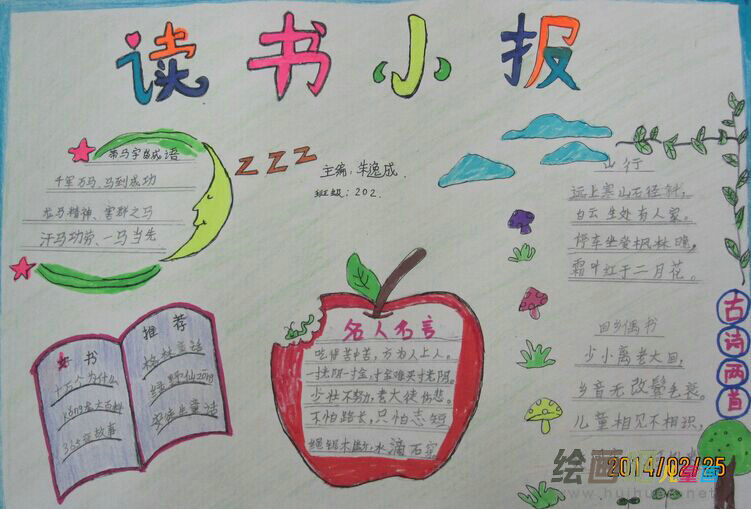 读书小报
带马字的成语
千军万马、马到成功
龙马精神、害群之马
汗马功劳、一马当先
zzz
主编：朱逸成
班级：202.
山行
远上寒山石径斜，
白云生处有人家。
停车坐爱枫林晚，
霜叶红于二月花。
回乡偶书
少小离老大回，
乡音无改鬓毛衰。
儿童相见不相识，
古诗两首
好书
十万个为什么
推荐
格林童话
绿野仙踪
安徒生童话
名人名言
吃得苦中苦，方为人上人。
一寸光阴一寸金，寸金难买寸光阴。
少壮不努力，老大徒伤悲。
不怕路长，只怕志短
绳锯木断，水滴石穿
2014/02/25
绘画
儿童画
www.huihua